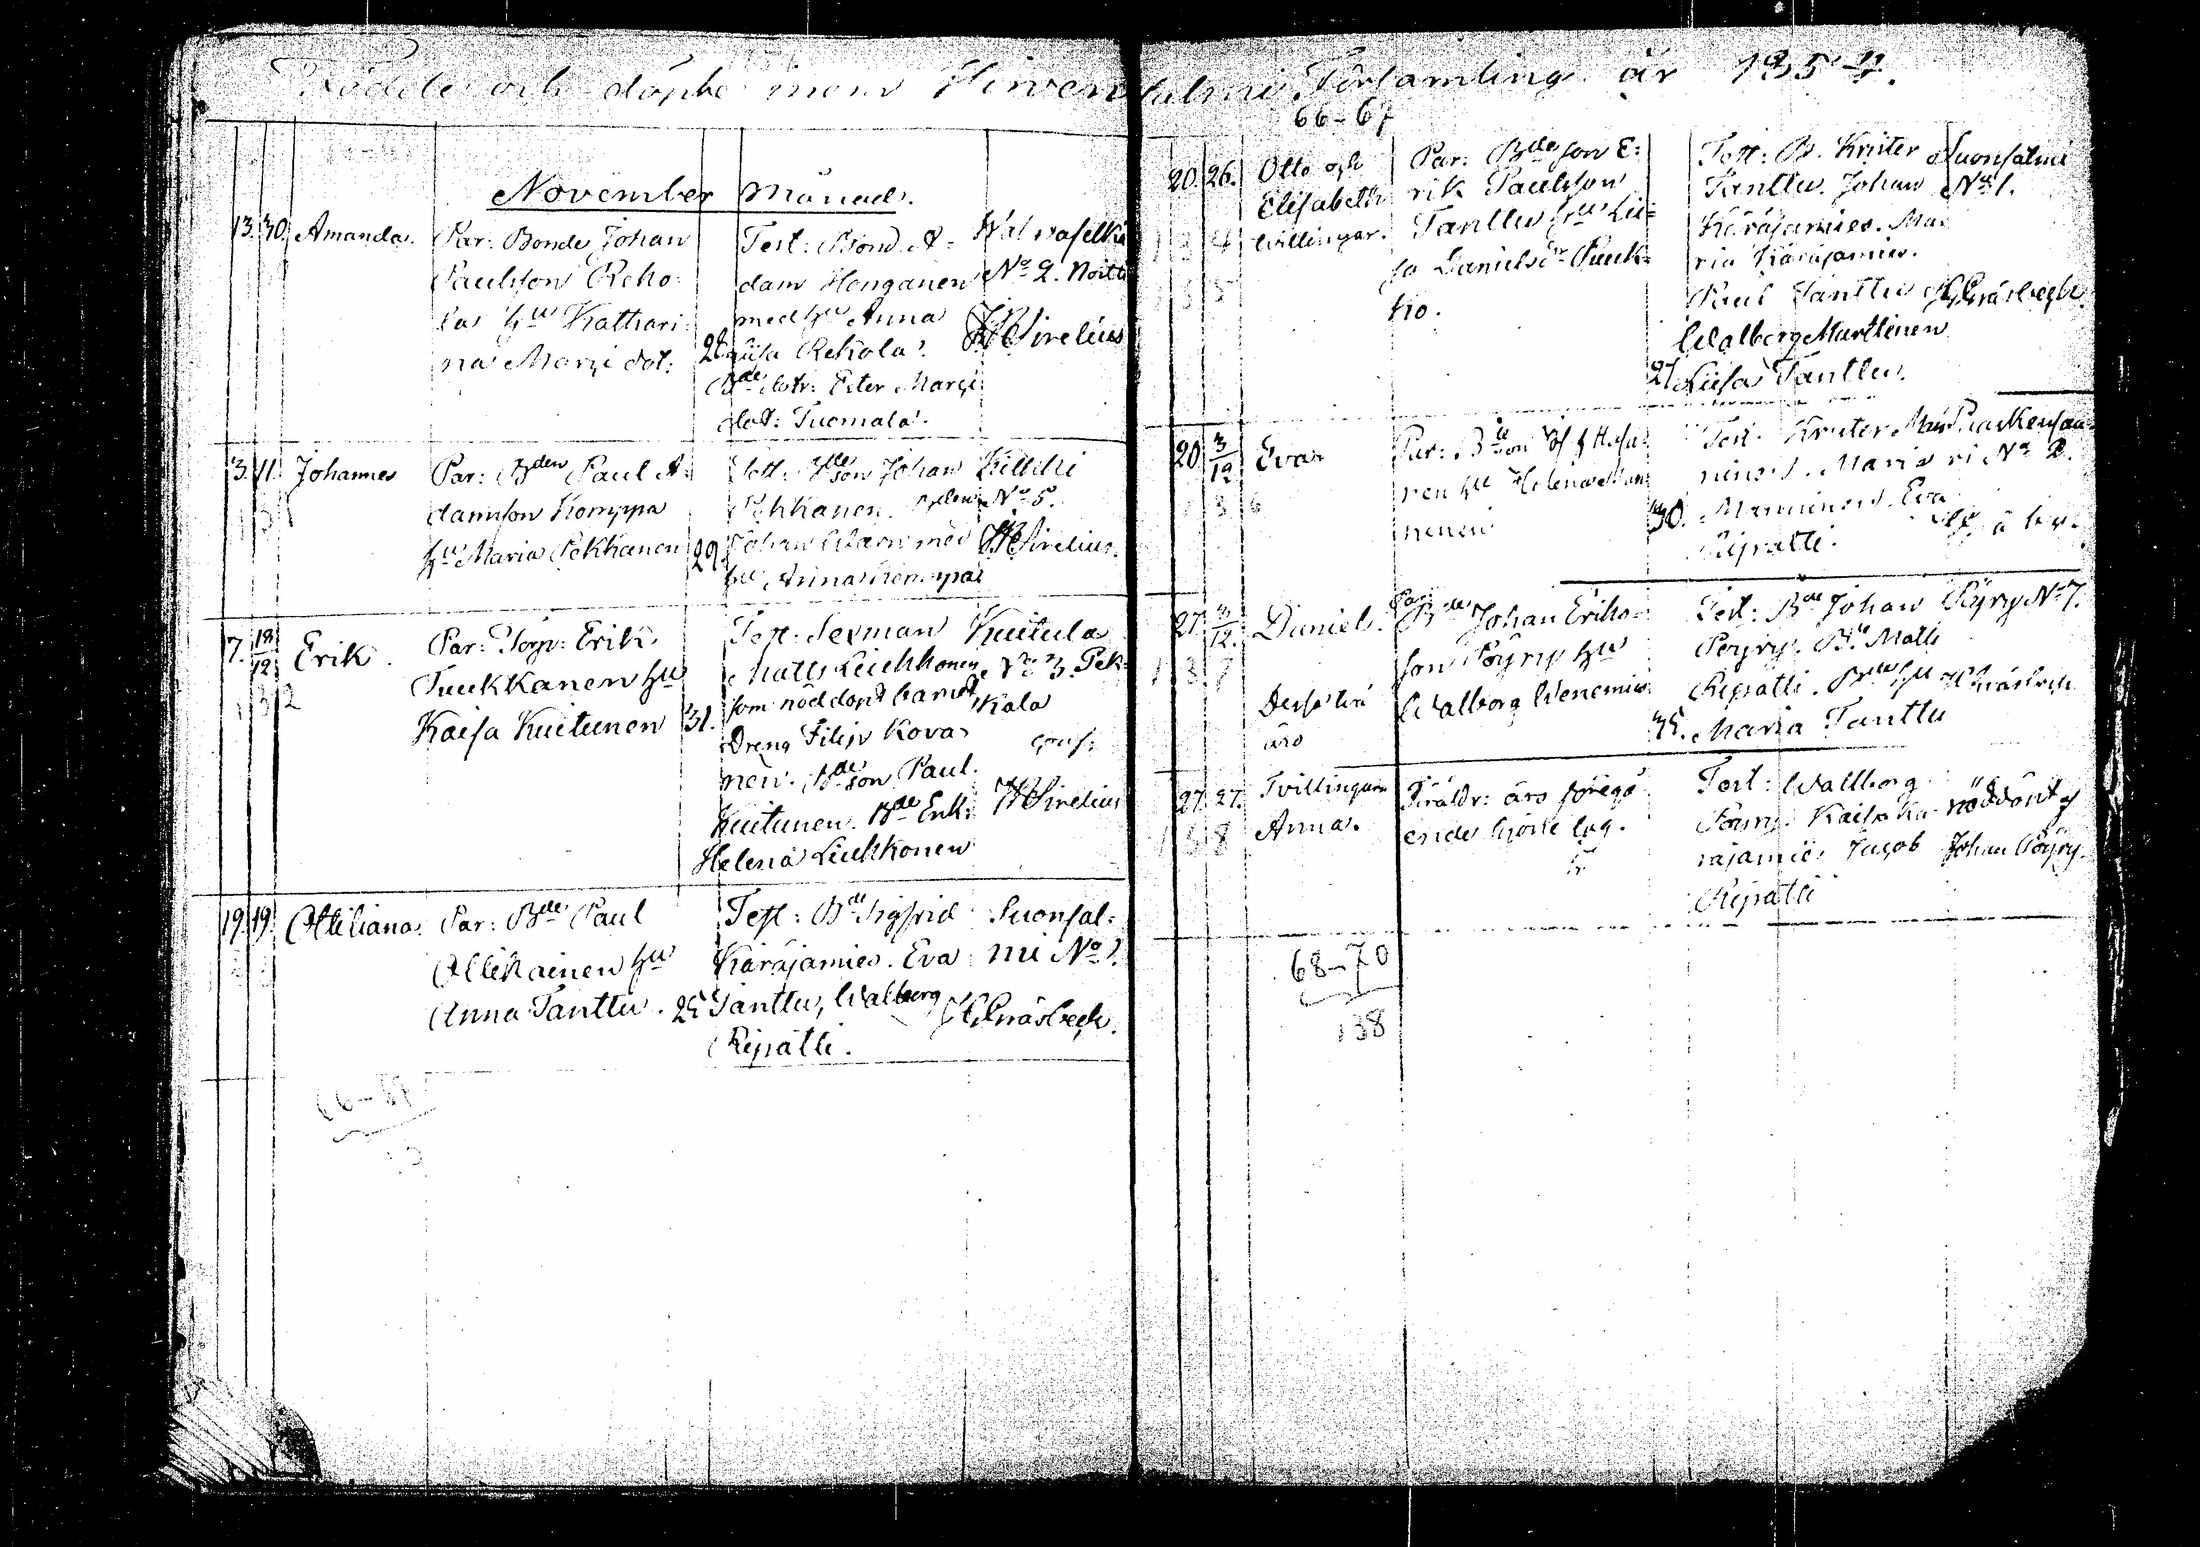 Födde och döpte inom Hirvensalmi Församling år 1854.
November Månad.
13. 30. Amanda.
Par: Bonde Johan
Paulsson Reho-
la hu Kathari-
na Marci dot:
28
Test: Bond. A-
dam Honganen
med hu Anna
Lisa Rekola.
Bde dotr: Ester Marci
dot: Tuomala.
No 2.
Sirelius
3. 11. Johannes
Par: Bden Paul A-
damsson Komppa
hu Maria Pekkanen
29
Test: Bdeson Johan
Pekkanen.
Johan med
hu Anna Komppa
Killiki
No 5.
Sirelius.
7. 18/12 Erik.
Par: Torp: Erik
Tuukkanen hu
Kaisa Kuitunen
31.
Test: Sexman
Matts Liukkonen
som nöddöpt barnet
Dreng Filip Kova-
nen. Bdeson Paul
Kuitunen. Bde Erik:
Helena Liukkonen
Kuitula
No 3. Pek-
kala
Sirelius
132
19. 19. Ottiliana.
Par: Bde Paul
Ollikainen hu
Anna Tanttu.
25
Test: Bde Sigfrid
Käräjämies. Eva
Tanttu, Walborg
Ripatti.
Suonsal-
mi No 1.
66-67
20. 26. Otto och
Elisabeth
tvillingar.
134
135
Par: Bdeson E-
rik Paulsson
Tanttu hu Lii-
sa Danielsdr Puuk-
ko.
27
Test: B. Krister
Tanttu. Johan
Käräjämies. Ma-
ria Käräjämies.
Paul Tanttu
Walborg Marttinen
Liisa Tanttu.
Suonsalmi
No 1.
20 3/12 Eva
136
nen hu Helena Man-
ninen
30.
Test: Krister Man-
ninen. Maria
Manninen. Eva
Ripatti.
No 2.
27. 3/12. Daniel.
137
Dessa två
äro
Par: Bde Johan Eriks-
son Pöyry hu
Walborg Wenemies
35.
Test: Bde Johan
Pöyry. Bde Matti
Ripatti. Bde hu
Maria Tanttu
Pöyry No 7.
27. 27. Tvillingar
Anna.
138
Föräldr: äro föregå-
ende hjone lag.
Test: Wallborg
Pöyry. Kaisa Kä-
räjämies Jacob
Ripatti
nöddöpt af
Johan Pöyry.
68-70
138